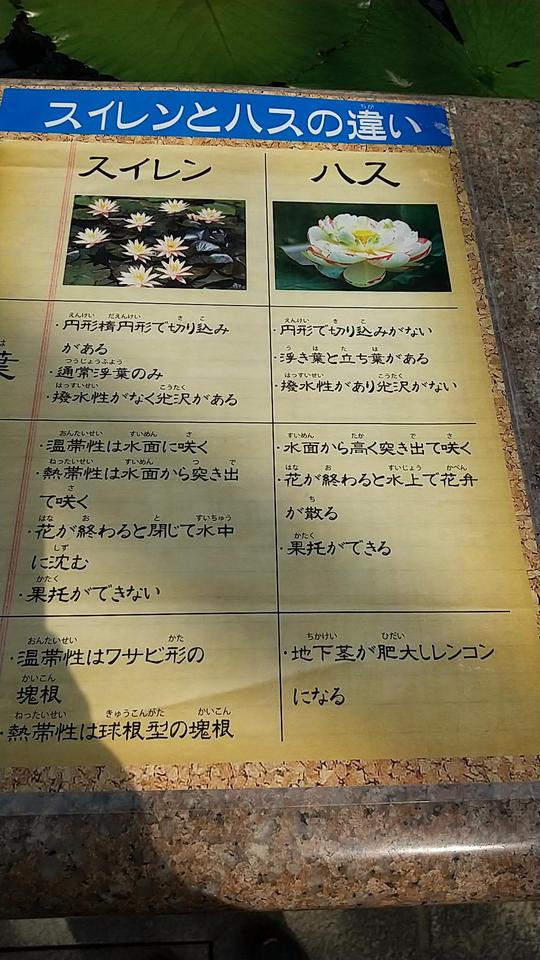 スイレンとハスの違い
スイレン
ハス
葉
・円形楕円形で切り込み
がある
・通常浮葉のみ
・撥水性がなく光沢がある
・円形で切り込みがない
・浮き葉と立ち葉がある
・撥水性があり光沢がない
・温帯性は水面に咲く
・熱帯性は水面から突き出
て咲く
・花が終わると閉じて水中
に沈む
・果托ができない
・水面から高く突き出て咲く
・花が終わると水上で花弁
が散る
・果托ができる
・温帯性はワサビ形の
塊根
・熱帯性は球根型の塊根
・地下茎が肥大しレンコン
になる